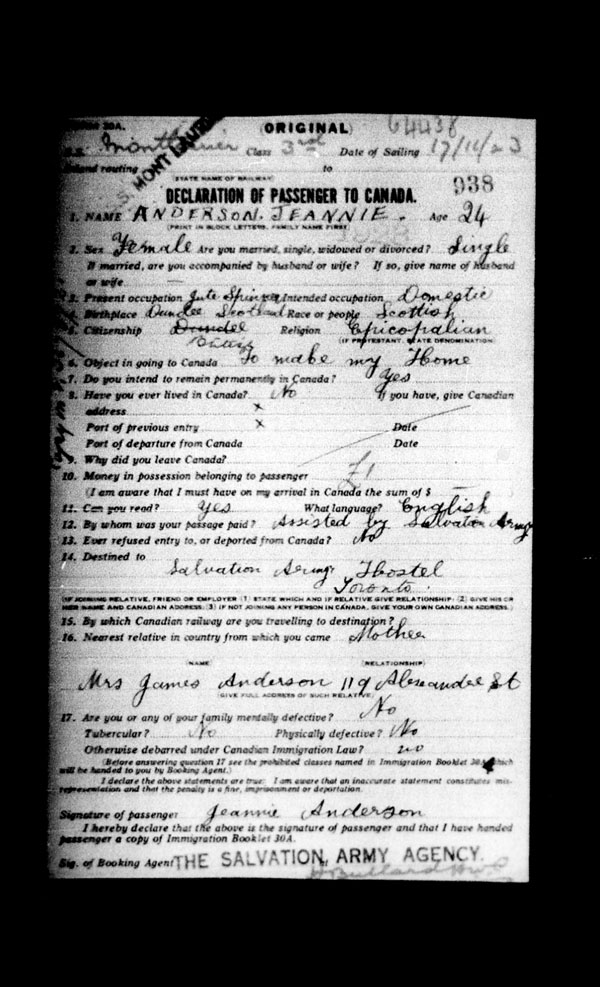 30A. (ORIGINAL) 64438
S.S. Montlaurier Class 3rd Date of Sailing 17/10/23
S.S. MONT LAURIER
Inland routing to
(STATE NAME OF RAILWAY)
DECLARATION OF PASSENGER TO CANADA. 938
1. NAME ANDERSON. JEANNIE. Age 24
(PRINT IN BLOCK LETTERS, FAMILY NAME FIRST)
2. Sex Female Are you married, single, widowed or divorced? Single
If married, are you accompanied by husband or wife? If so, give name of husband
or wife —
3. Present occupation Jute Spinner Intended occupation Domestic
4. Birthplace Dundee Scotland Race or people Scottish
5. Citizenship Dundee Religion Epicopalian
British (IF PROTESTANT, STATE DENOMINATION
6. Object in going to Canada To make my Home
7. Do you intend to remain permanently in Canada? Yes
8. Have you ever lived in Canada? No If you have, give Canadian
address x
Port of previous entry x Date
Port of departure from Canada Date
9. Why did you leave Canada?
10. Money in possession belonging to passenger £1
(I am aware that I must have on my arrival in Canada the sum of $ —
11. Can you read? Yes What language? English
12. By whom was your passage paid? Assisted by Salvation Army
13. Ever refused entry to, or deported from Canada? No
14. Destined to
Salvation Army Hostel
Toronto
(IF JOINING RELATIVE, FRIEND OR EMPLOYER (1) STATE WHICH AND IF RELATIVE GIVE RELATIONSHIP: (2) GIVE HIS OR
HER NAME AND CANADIAN ADDRESS. (3) IF NOT JOINING ANY PERSON IN CANADA, GIVE YOUR OWN CANADIAN ADDRESS.)
15. By which Canadian railway are you travelling to destination?
16. Nearest relative in country from which you came Mother
(NAME) (RELATIONSHIP)
Mrs James Anderson 119 Alexander St
(GIVE FULL ADDRESS OF SUCH RELATIVE)
17. Are you or any of your family mentally defective? No
Tubercular? No Physically defective? No
Otherwise debarred under Canadian Immigration Law? no
(Before answering question 17 see the prohibited classes named in Immigration Booklet 30A which
will be handed to you by Booking Agent.)
I declare the above statements are true: I am aware that an inaccurate statement constitutes mis-
representation and that the penalty is a fine, imprisonment or deportation.
Signature of passenger Jeannie Anderson
I hereby declare that the above is the signature of passenger and that I have handed
passenger a copy of Immigration Booklet 30A.
Sig. of Booking Agent THE SALVATION ARMY AGENCY.